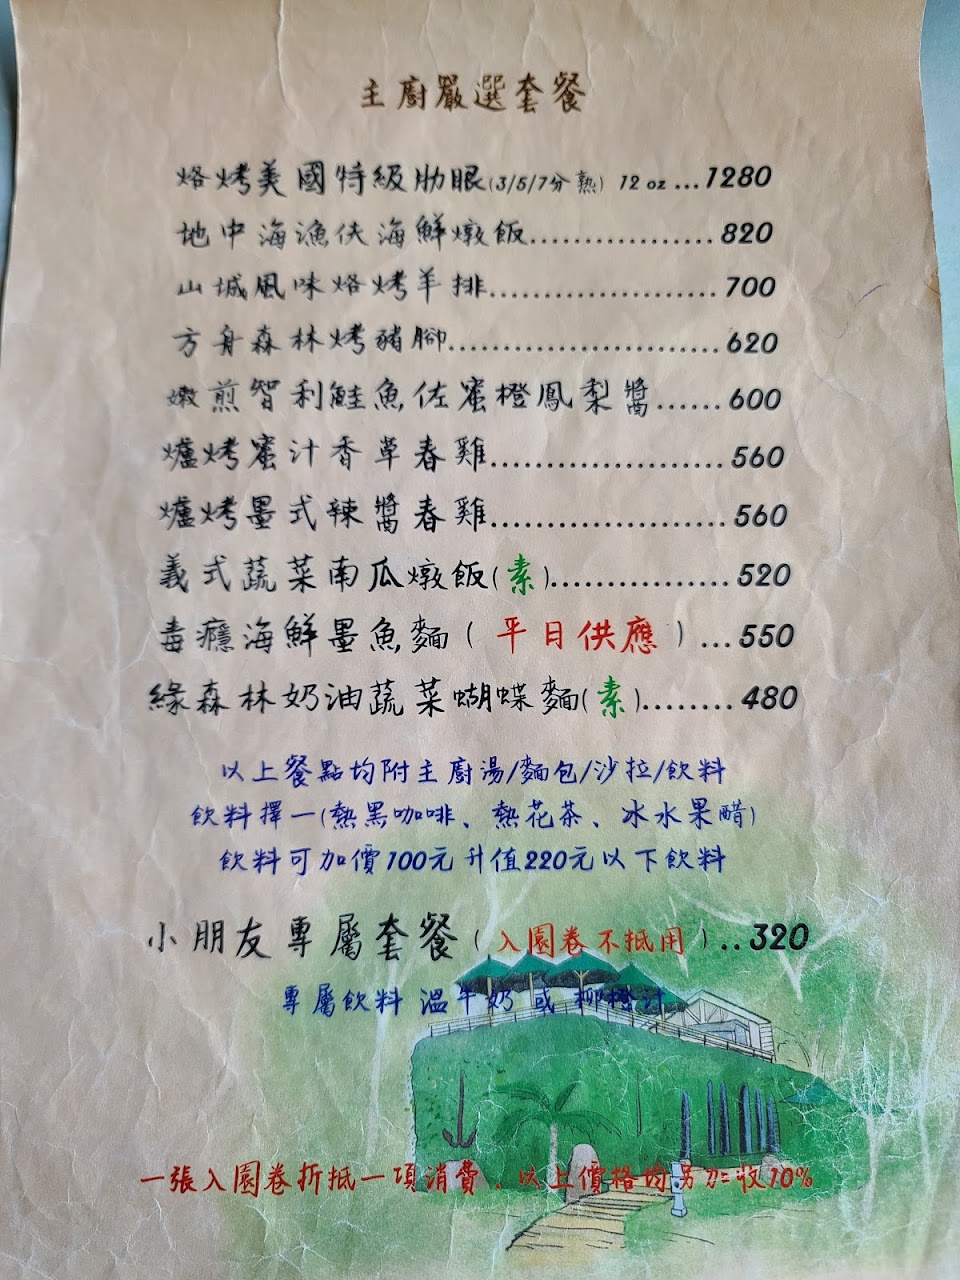 主廚嚴選套餐
烙烤美國特級肋眼(3/5/7分熟) 12 oz ...1280
地中海漁伕海鮮燉飯.................820
山城風味烙烤羊排.....................700
方舟森林烤豬腳.........................620
嫩煎智利鮭魚佐蜜橙鳳梨醬......600
爐烤蜜汁香草春雞.....................560
爐烤墨式辣醬春雞.....................560
義式蔬菜南瓜燉飯(素)................520
毒癮海鮮墨魚麵(平日供應)...550
綠森林奶油蔬菜蝴蝶麵(素)........480
以上餐點均附主廚湯/麵包/沙拉/飲料
飲料擇一(熱黑咖啡、熱花茶、冰水果醋)
飲料可加價100元升值220元以下飲料
小朋友專屬套餐(入園卷不抵用)..320
專屬飲料 溫牛奶 或 柳橙汁
一張入園卷折抵一項消費.以上價格均另加收10%